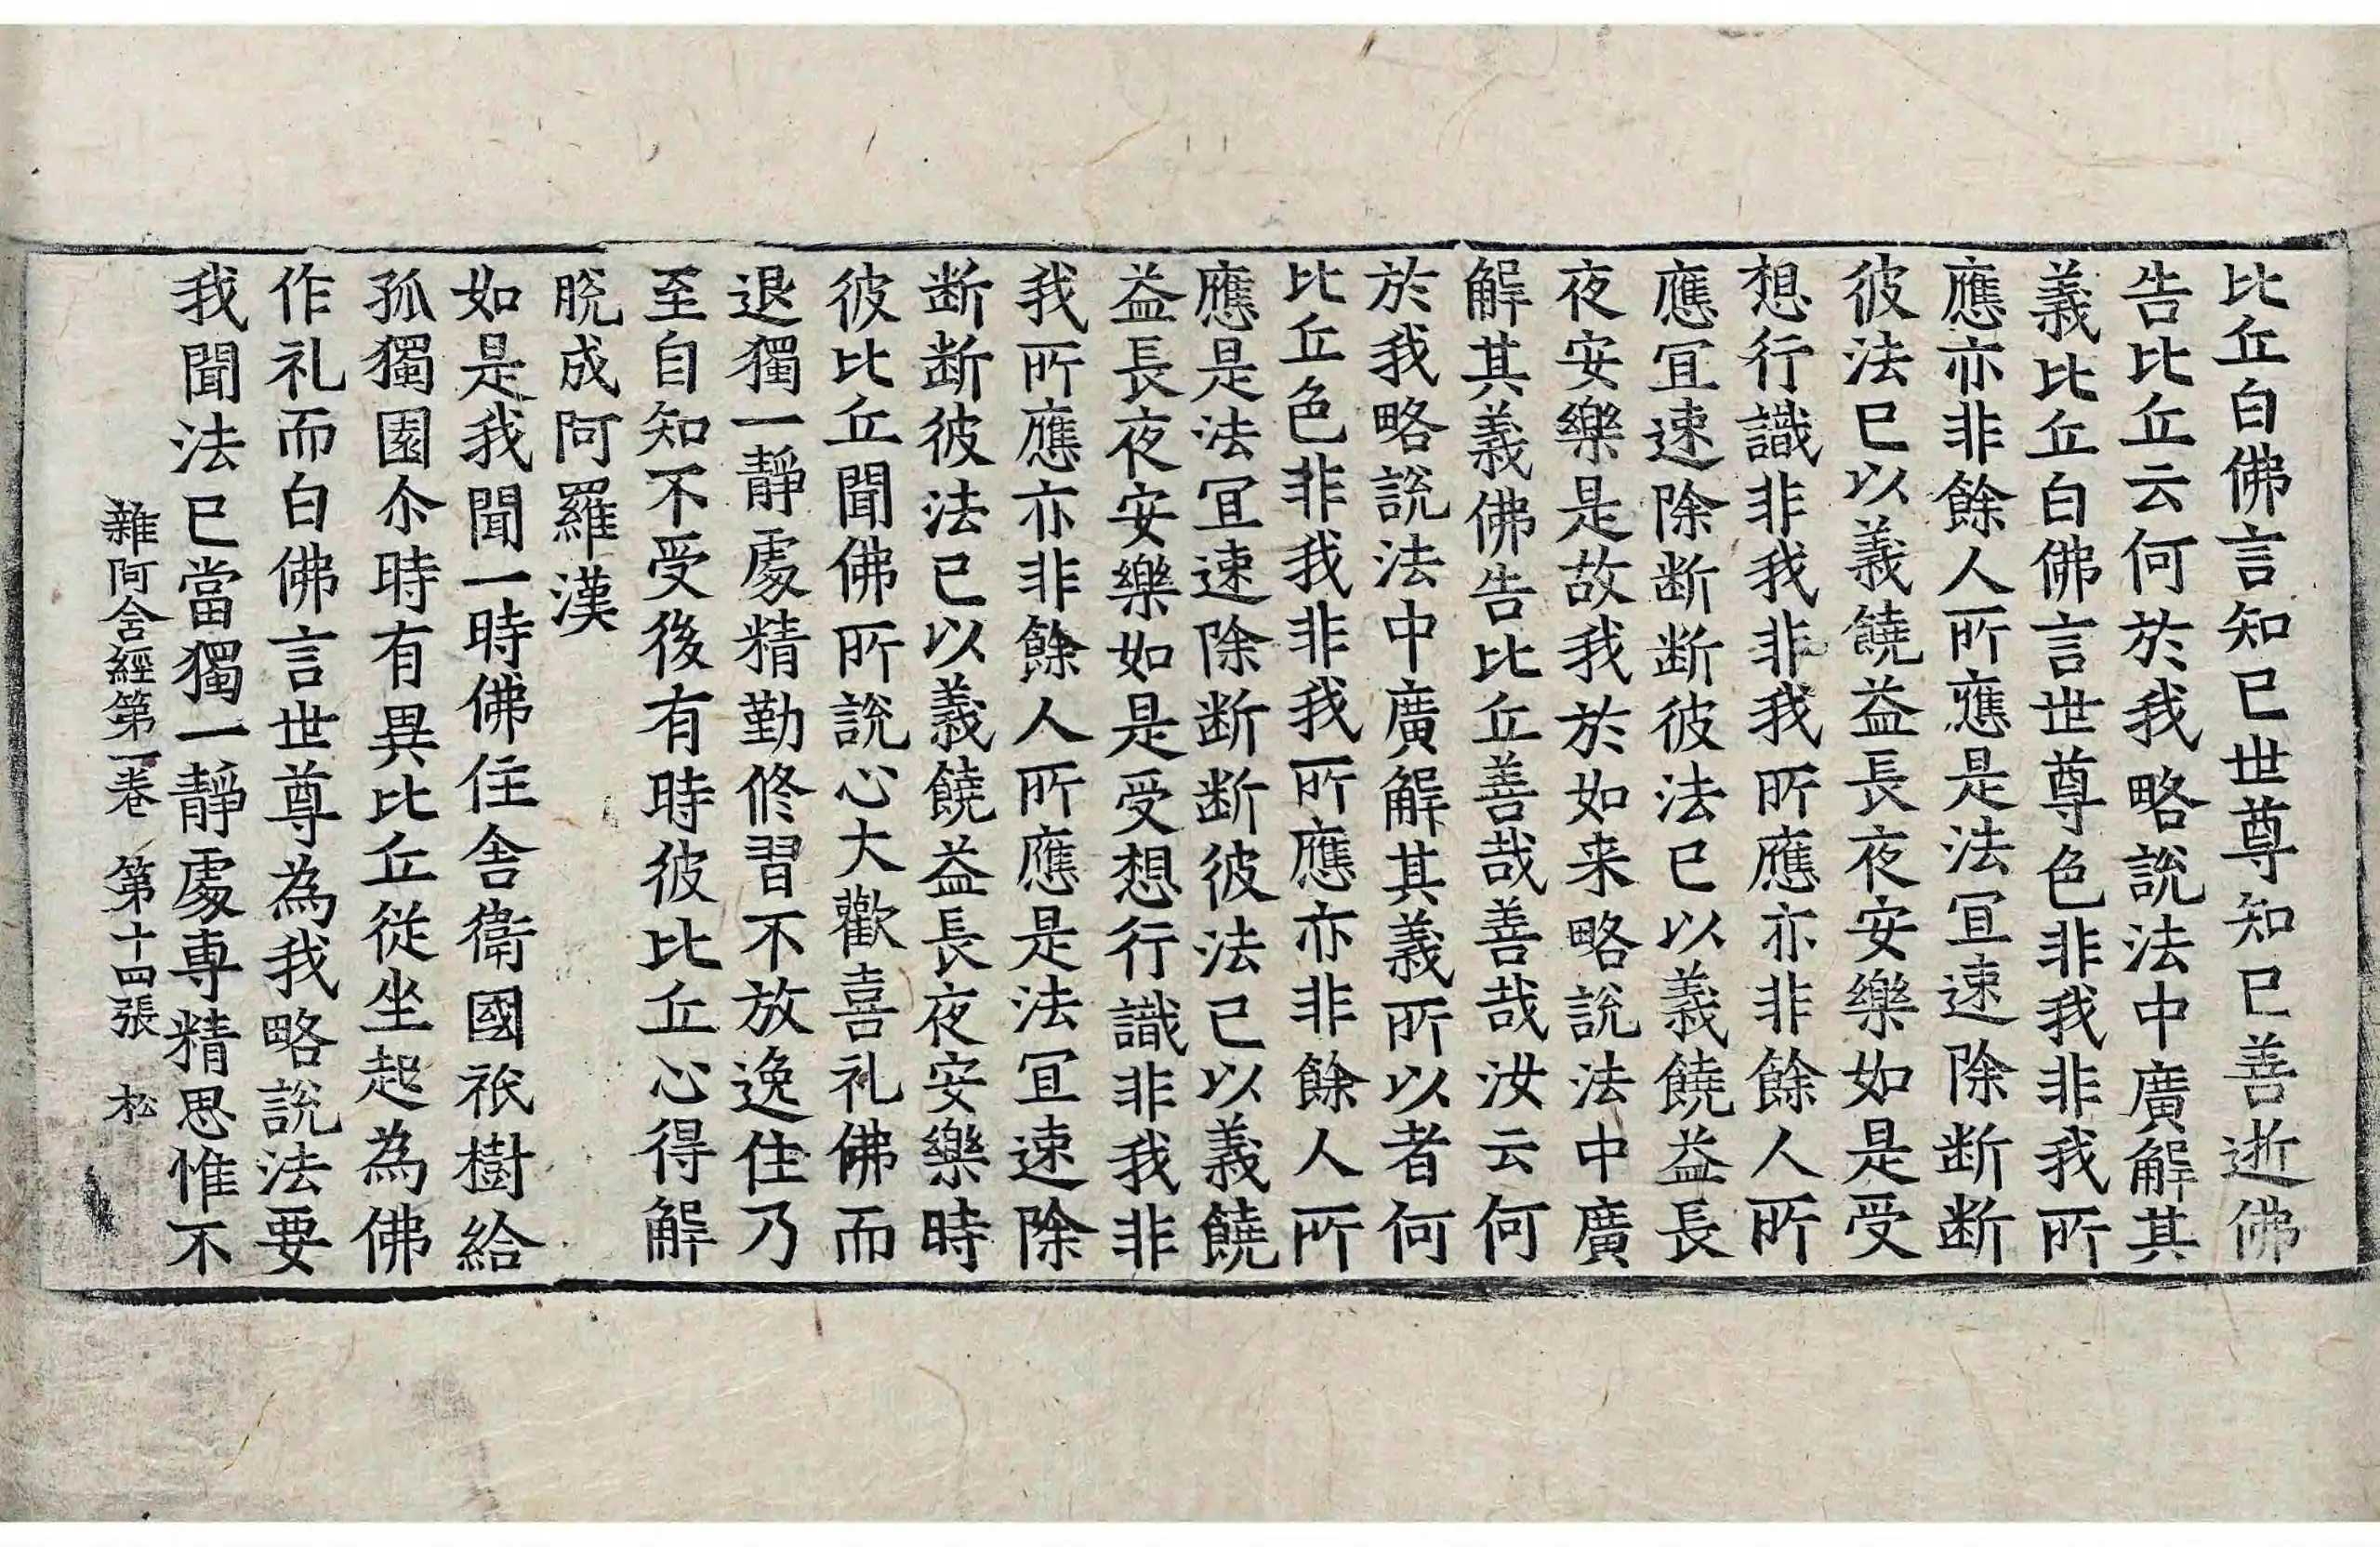 比丘白佛言知已世尊知已善逝佛
告比丘云何於我略說法中廣解其
義比丘白佛言世尊色非我非我所
應亦非餘人所應是法冝速除断断
彼法已以義饒益長夜安樂如是受
想行識非我非我所應亦非餘人所
應冝速除断断彼法已以義饒益長
夜安樂是故我於如来略說法中廣
解其義佛告比丘善哉善哉汝云何
於我略說法中廣解其義所以者何
比丘色非我非我所應亦非餘人所
應是法冝速除断断彼法已以義饒
益長夜安樂如是受想行識非我非
我所應亦非餘人所應是法冝速除
断断彼法已以義饒益長夜安樂時
彼比丘聞佛所說心大歡喜礼佛而
退獨一靜處精勤修習不放逸住乃
至自知不受後有時彼比丘心得解
脫成阿羅漢
如是我聞一時佛住舎衛國祇樹給
孤獨園尒時有異比丘從坐起為佛
作礼而白佛言世尊為我略說法要
我聞法已當獨一靜處專精思惟不
雜阿含經第一卷 第十四張 松